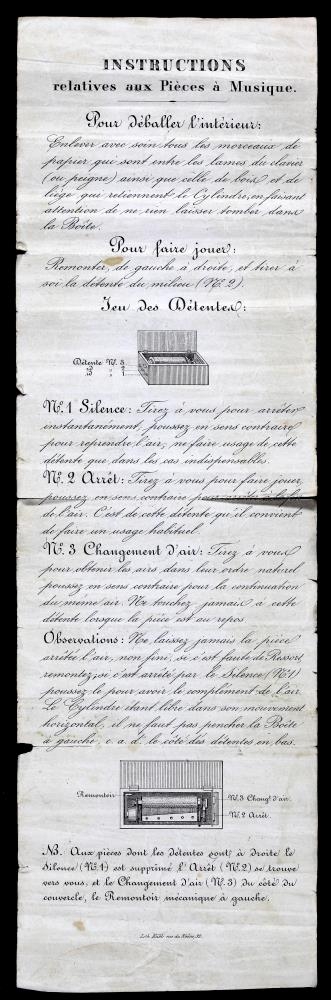 INSTRUCTIONS
relatives aux Pièces à Musique.
Pour déballer l'intérieur:
Enlever avec soin tous les morceaux de
papier qui sont entre les lames du clavier
(ou peigne) ainsi que celle de bois et de
liège qui retiennent le Cylindre, en faisant
attention de ne rien laisser tomber dans
la Boîte.
Pour faire jouer:
Remonter, de gauche à droite, et tirer à
soi la détente du milieu (N.º 2).
Jeu des Détentes:
Détente Nº. 3
2
1
Nº. 1 Silence: Tirez à vous pour arrêter
instantanément, poussez en sens contraire
pour reprendre l'air; ne faire usage de cette
détente que dans les cas indispensables.
Nº. 2 Arrêt: Tirez à vous pour faire jouer,
poussez en sens contraire pour
de l'air. C'est de cette détente qu'il convient
de faire un usage habituel.
Nº. 3 Changement d'air: Tirez à vous
pour obtenir les airs dans leur ordre naturel
poussez en sens contraire pour la continuation
du même air. Ne touchez jamais à cette
détente lorsque la pièce est au repos.
Observations: Ne laissez jamais la pièce
arrêtée l'air, non fini, si c'est faute de Ressort
remontez; si c'est arrêté par le Silence (Nº. 1)
poussez le pour avoir le complément de l'air.
Le Cylindre étant libre dans son mouvement
horizontal, il ne faut pas pencher la Boîte
à gauche, c. a. d. le côté des détentes en bas.
Remontoir
Nº. 3 Changt. d'air.
Nº. 2 Arrêt.
NB. Aux pièces dont les détentes sont à droite le
Silence (Nº. 1) est supprimé l'Arrêt (Nº. 2) se trouve
vers vous, et le Changement d'air (Nº. 3) du côté du
couvercle, le Remontoir mécanique à gauche.
Lith. rue du Rhône